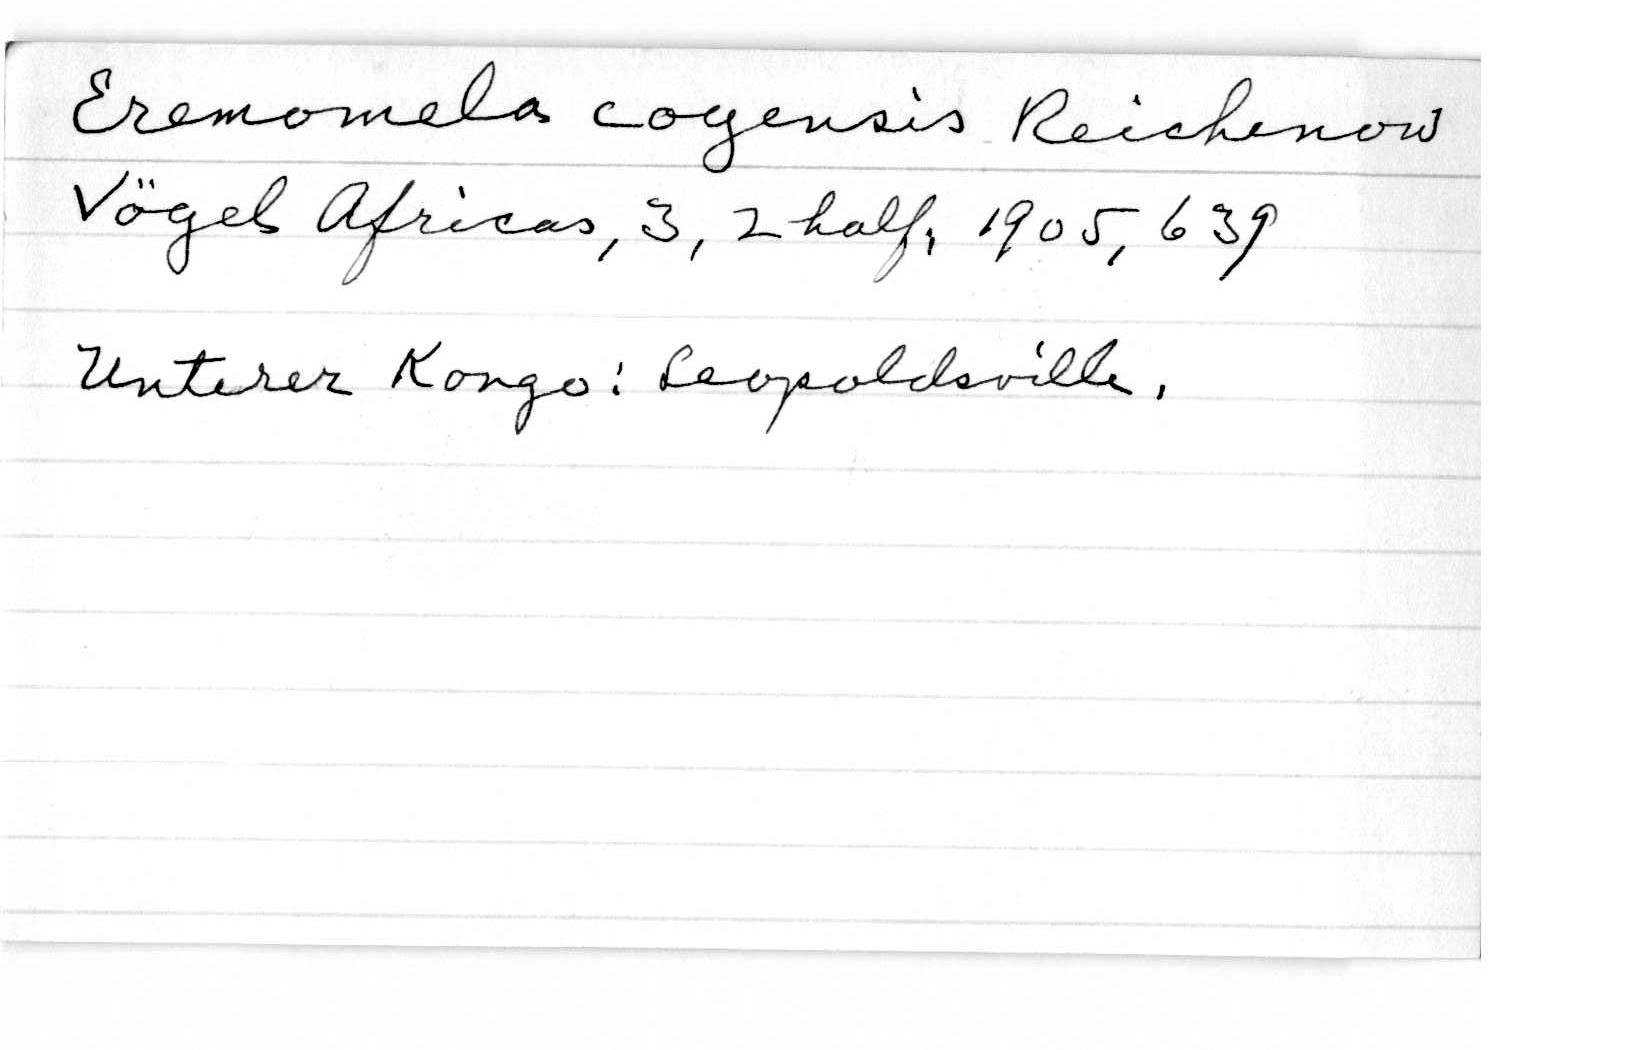 Eremomela cogensis Reichenow
Vögel Africas, 3, 2 half, 1905, 639
Unterer Kongo: Leopoldsville.